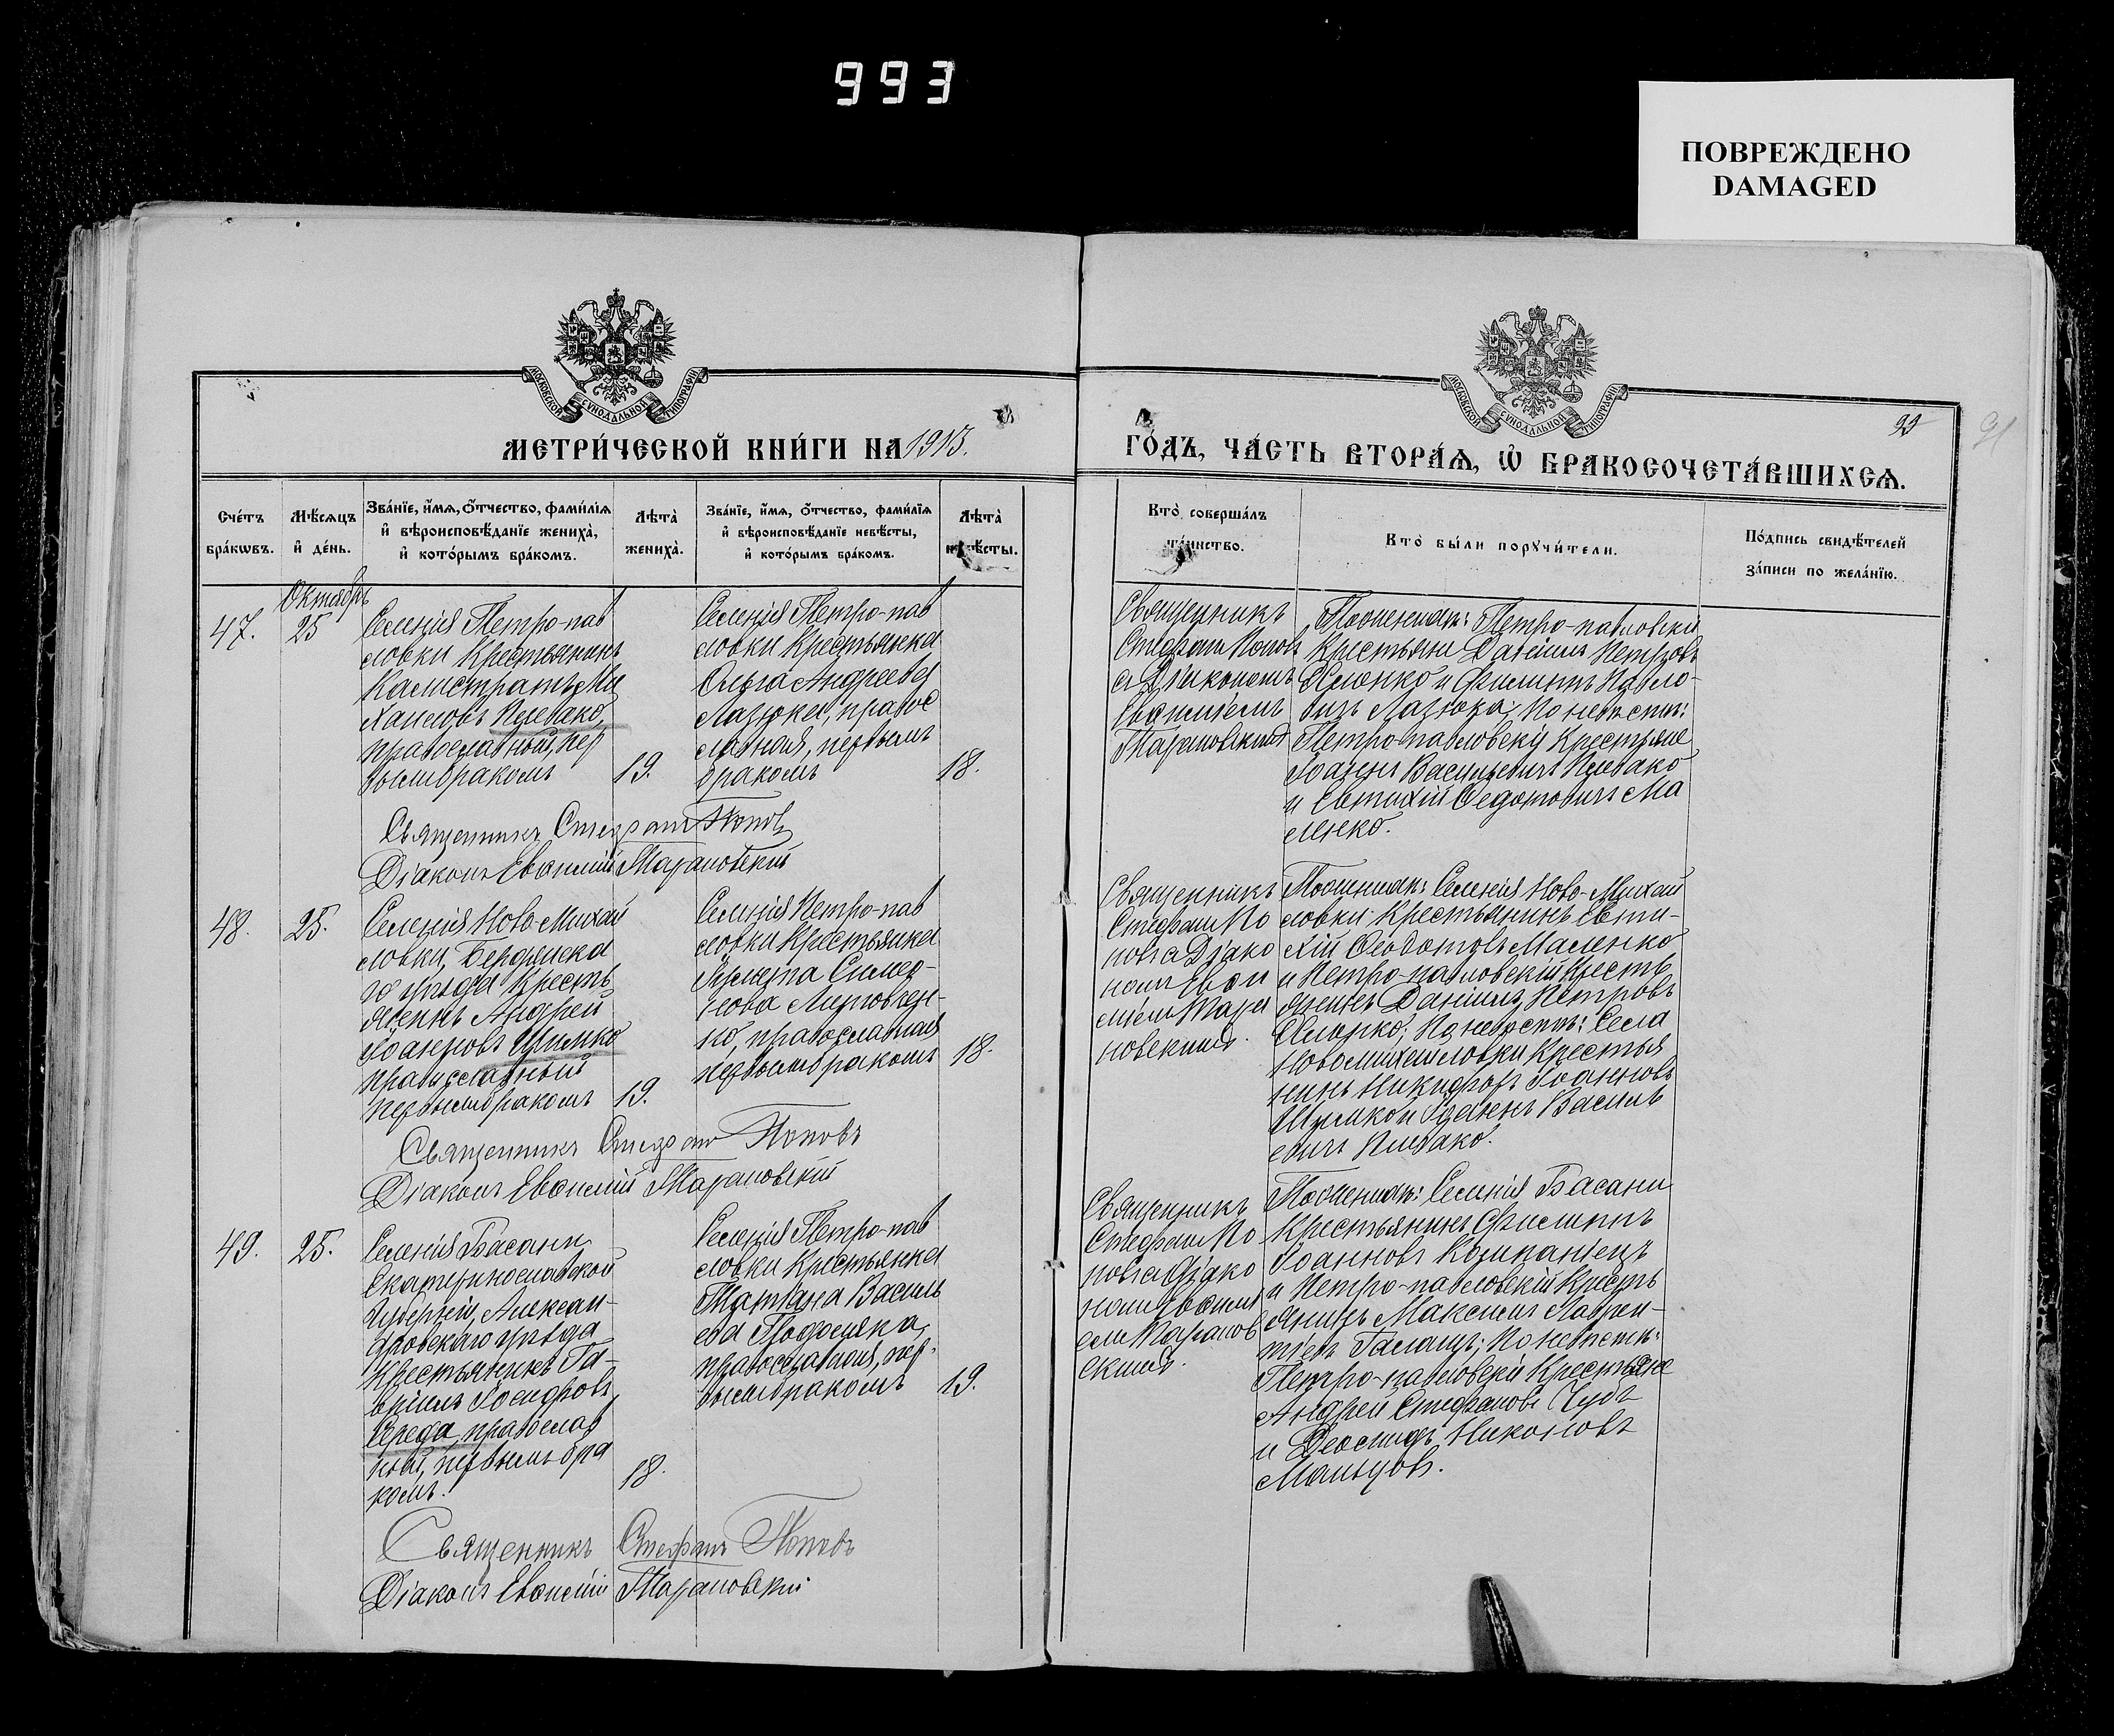 993
ПОВРЕЖДЕНО
DAMAGED
МОСКОВСКОЙ СѴНОДАЛЬНОЙ ТИПОГРАФІИ
МОСКОВСКОЙ СѴНОДАЛЬНОЙ ТИПОГРАФІИ
МЕТРИ́ЧЕСКОЙ КНИ́ГИ НА 1913.
ГО́ДЪ, ЧА́СТЬ ВТОРА́Ѧ, Ѽ БРАКОСОЧЕТА́ВШИХСѦ.
91
Сче́тъ бра́кωвъ.
Мѣ́сяцъ и҆ де́нь.
Зва́нїе, и҆́мѧ, ѻ҆́тчество, фами́лїѧ и҆ вѣроисповѣ́данїе жениха̀, и҆ кото́рымъ бра́комъ.
Лѣта̀ жениха̀.
Зва́нїе, и҆́мѧ, ѻ҆́тчество, фами́лїѧ и҆ вѣроисповѣ́данїе невѣ́сты, и҆ кото́рымъ бра́комъ.
Лѣта̀ невѣ́сты.
Кто̀ соверша́лъ та́инство.
Кто̀ бы́ли порꙋчи́тели.
По́дпись свидѣ́телей за́писи по жела́нїю.
Октябрь
47.
25
Селенія Петро-пав
ловки Крестьянинъ
Калистратъ Ми
хаиловъ Пливако,
православный, пер
вымъ бракомъ
19.
Селенія Петро-пав
ловки Крестьянка
Ольга Андреева
Лазюка, правос
лавная, первымъ
бракомъ
18.
Священникъ
Стефанъ Поповъ
съ Діакономъ
Евѳиміемъ
Тарановскимъ
По женихѣ: Петро-павловскіи
Крестьяне Даніилъ Петровъ
и Филиппъ Павло-
вичъ Лазюка; По невѣстѣ:
Петро-павловскіи Крестьяне
Іоаннъ Васильевичъ Пливако
и Евтихій Ѳедотовичъ Ма
ленко.
Священникъ Стефанъ Поповъ
Діаконъ Евѳимій Тарановскій
48.
25.
Селенія Ново-Михай
ловки, Бердянска
го уѣзда Кресть
янинъ Андрей
Іоанновъ Шимко
православный
первымъ бракомъ
19.
Селенія Петро-пав
ловки Крестьянка
Симео-
нова Литовчен-
ко, православная
первымъ бракомъ
18.
Священникъ
Стефанъ По
повъ съ Діако
номъ Евѳи
міемъ Тара
новскимъ.
По женихѣ: Селенія Ново-Михай
ловки Крестьянинъ Евти-
хій Ѳеодотовъ Маленко
и Петро-павловскій Кресть
янинъ Даніилъ Петровъ
По невѣстѣ: Села
Новомихайловки Крестья
нинъ Никифоръ Іоанновъ
Шимко и Іоаннъ Василь
евичъ Пливако.
Священникъ Стефанъ Поповъ
Діаконъ Евѳимій Тарановскій
49.
25.
Селенія Басани
Екатеринославской
губерніи, Алексан-
дровскаго уѣзда
Крестьянинъ Га-
вріилъ Іосифовъ
Середа, православ
ный, первымъ бра
комъ.
18.
Селенія Петро-пав
ловки Крестьянка
Татіана Василь
ева
православная, пер-
вымъ бракомъ
19.
Священникъ
Стефанъ По
повъ съ Діако
номъ Евѳимі
емъ Таранов
скимъ.
По женихѣ: Селенія Басани
Крестьянинъ Филиппъ
Іоанновъ Компаніецъ
и Петро-павловскій Кресть
янинъ Максимъ Лаврен-
тіевъ Галащъ; По невѣстѣ:
Петро-павловскіи Крестьяне
Андрей Стефановъ Чубъ
и Никоновъ
Мальцовъ.
Священникъ Стефанъ Поповъ
Діаконъ Евѳимій Тарановскій